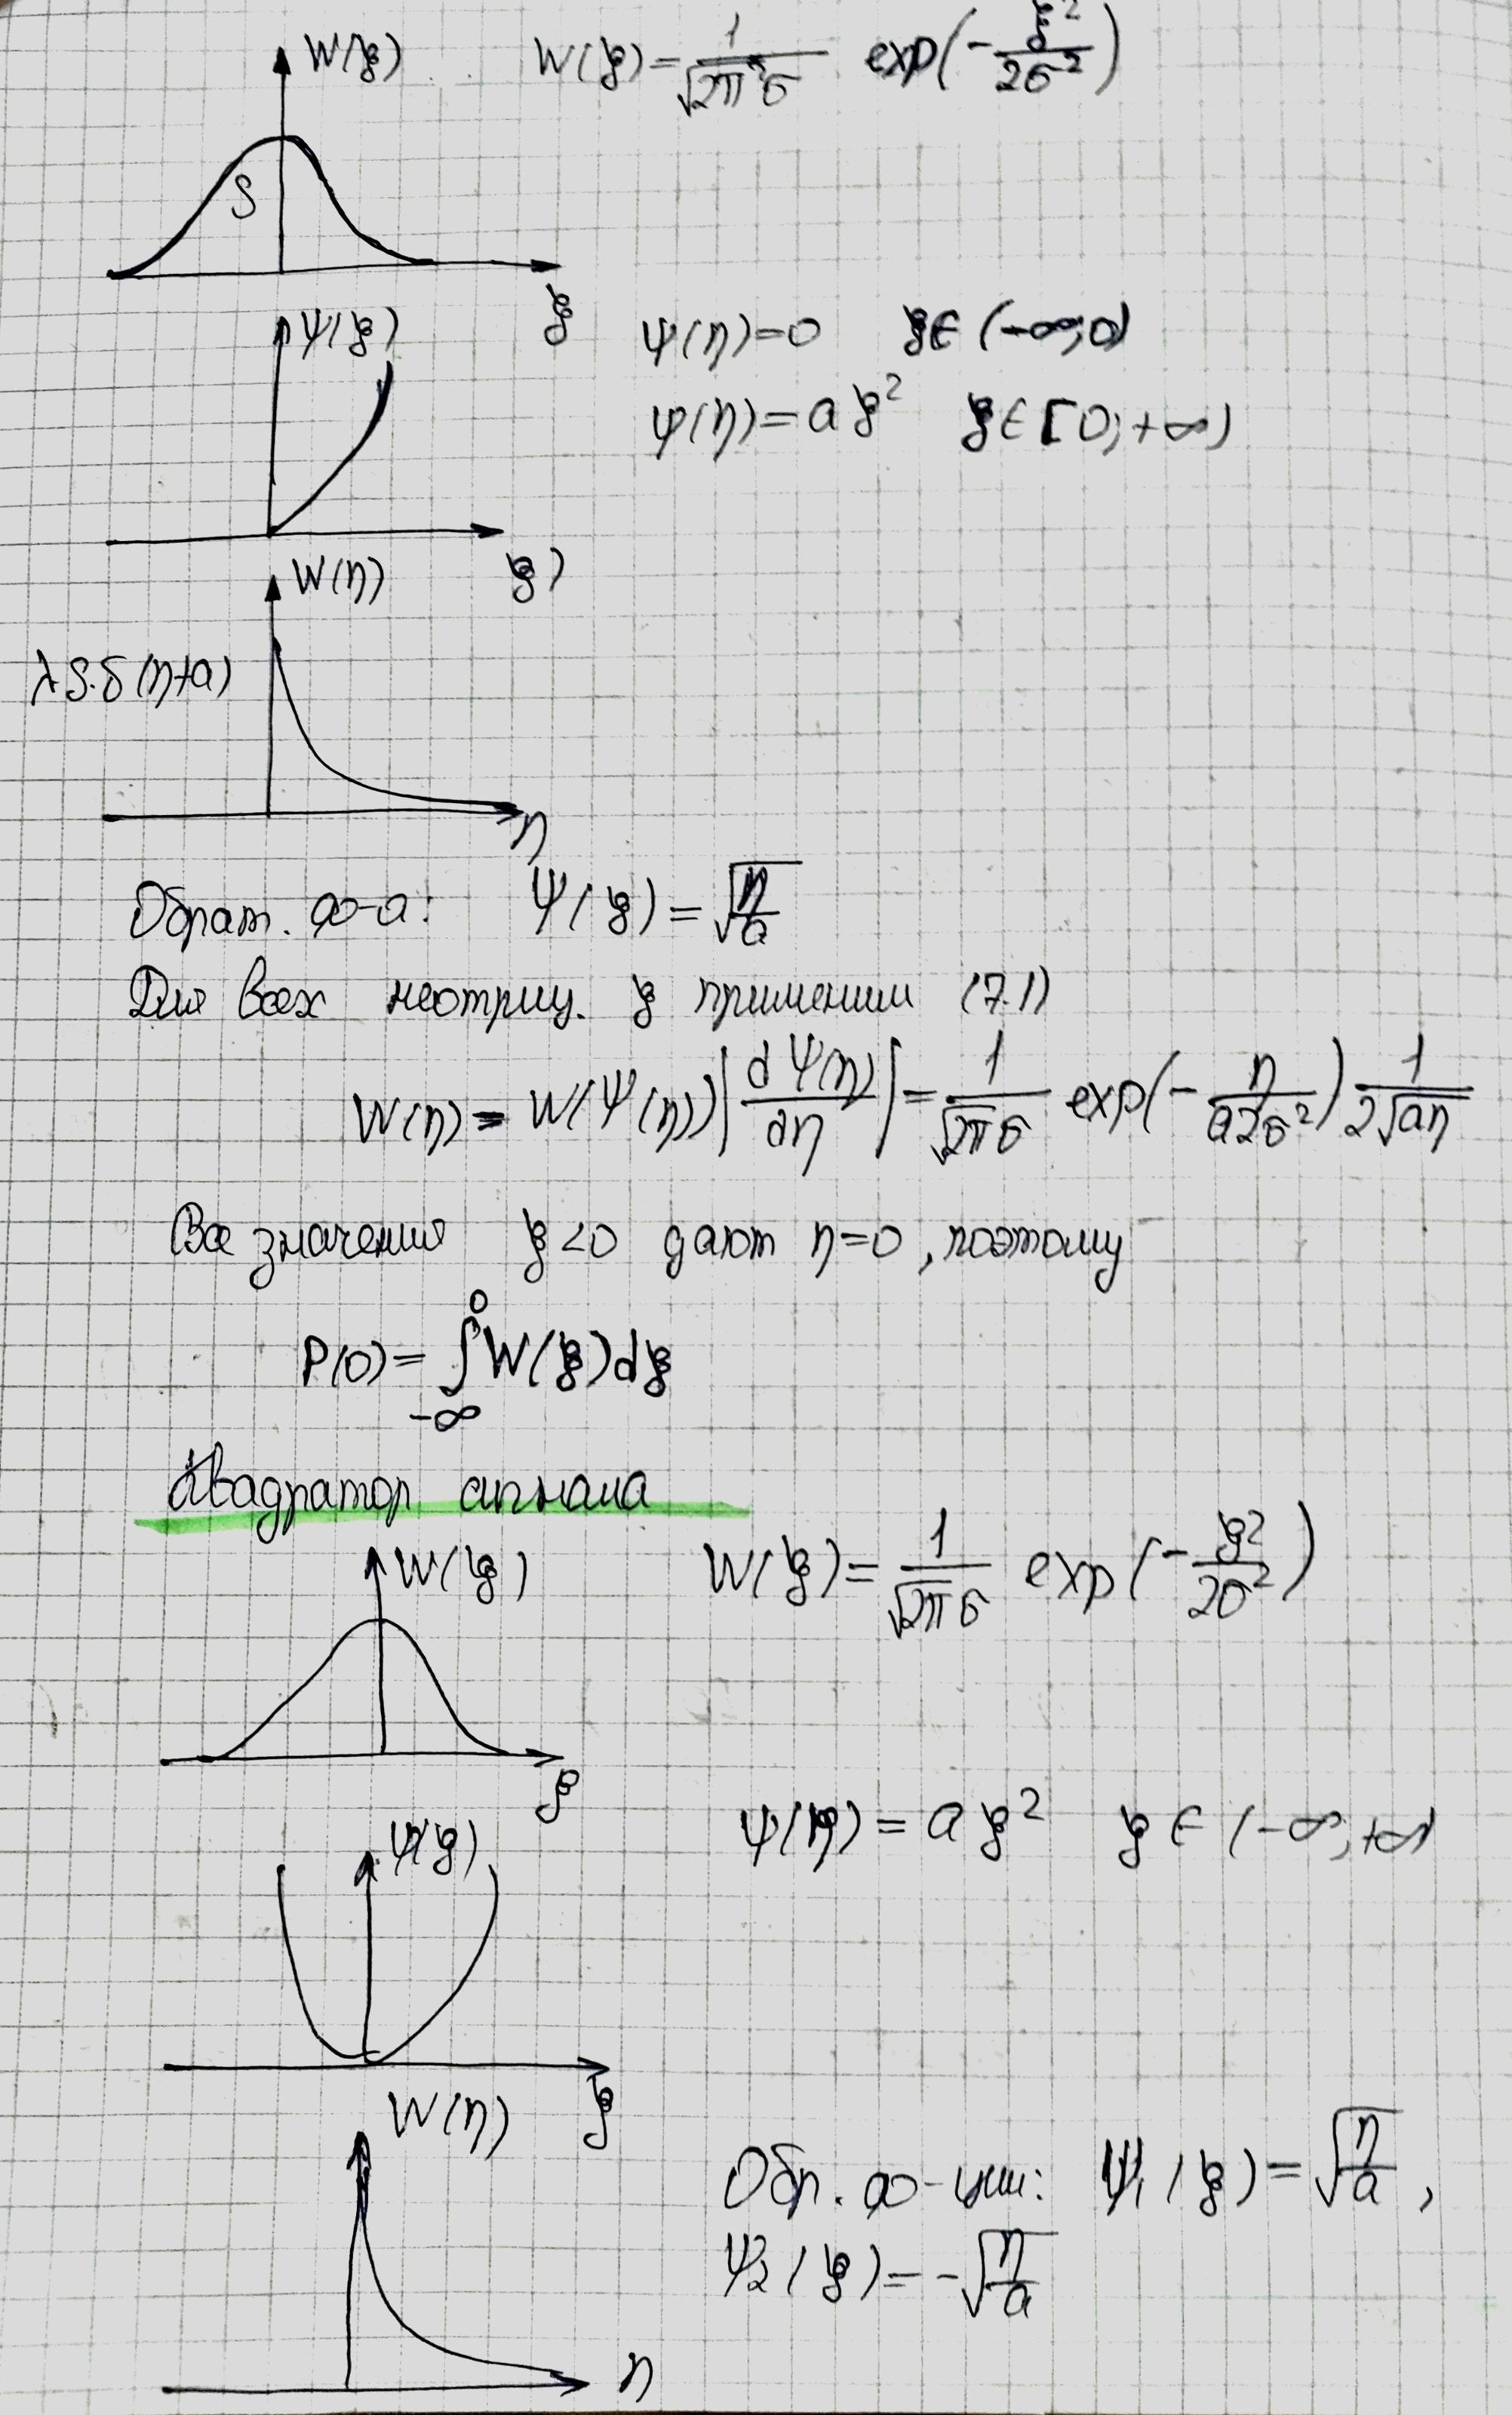 W(ξ) W(ξ) = 1/(√2π σ) exp(-ξ²/2σ²)
S
ξ
ψ(ξ) ψ(η)=0 ξ∈(-∞;0)
ψ(η)=aξ² ξ∈[0;+∞)
ξ)
W(η)
λS.δ(η+a)
η
Обрат. ф-а: Ψ(ξ) = √(η/a)
Для всех неотриц. ξ применим (7.1)
W(η) = W(Ψ(η))|dΨ(η)/dη| = 1/(√2π σ) exp(-η/(a2σ²)) 1/(2√aη)
Все значения ξ<0 дают η=0, поэтому
P(0) = ∫_{-∞}^{0} W(ξ)dξ
Квадратор сигнала
W(ξ) W(ξ) = 1/(√2π σ) exp(-ξ²/2σ²)
ξ
ψ(ξ) ψ(η) = aξ² ξ∈(-∞;+∞)
ξ
W(η)
Обр. ф-ции: Ψ₁(ξ) = √(η/a),
Ψ₂(ξ) = -√(η/a)
η